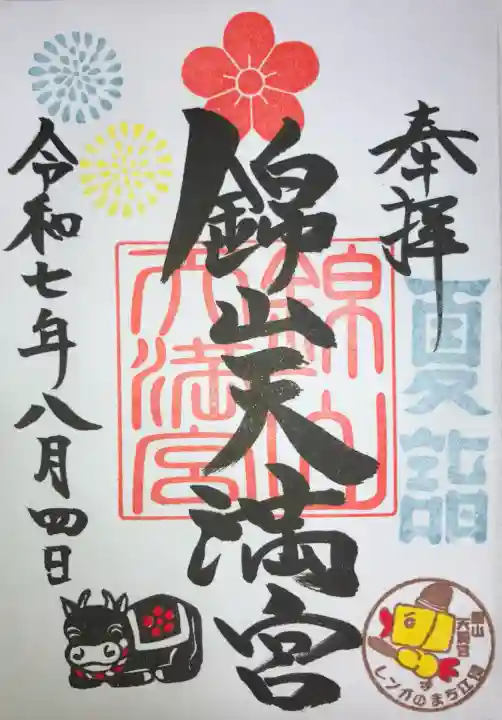 奉拝
夏詣
錦山天満宮
錦山
天満宮
令和七年八月四日
錦山
天満宮
レンガのまち江別